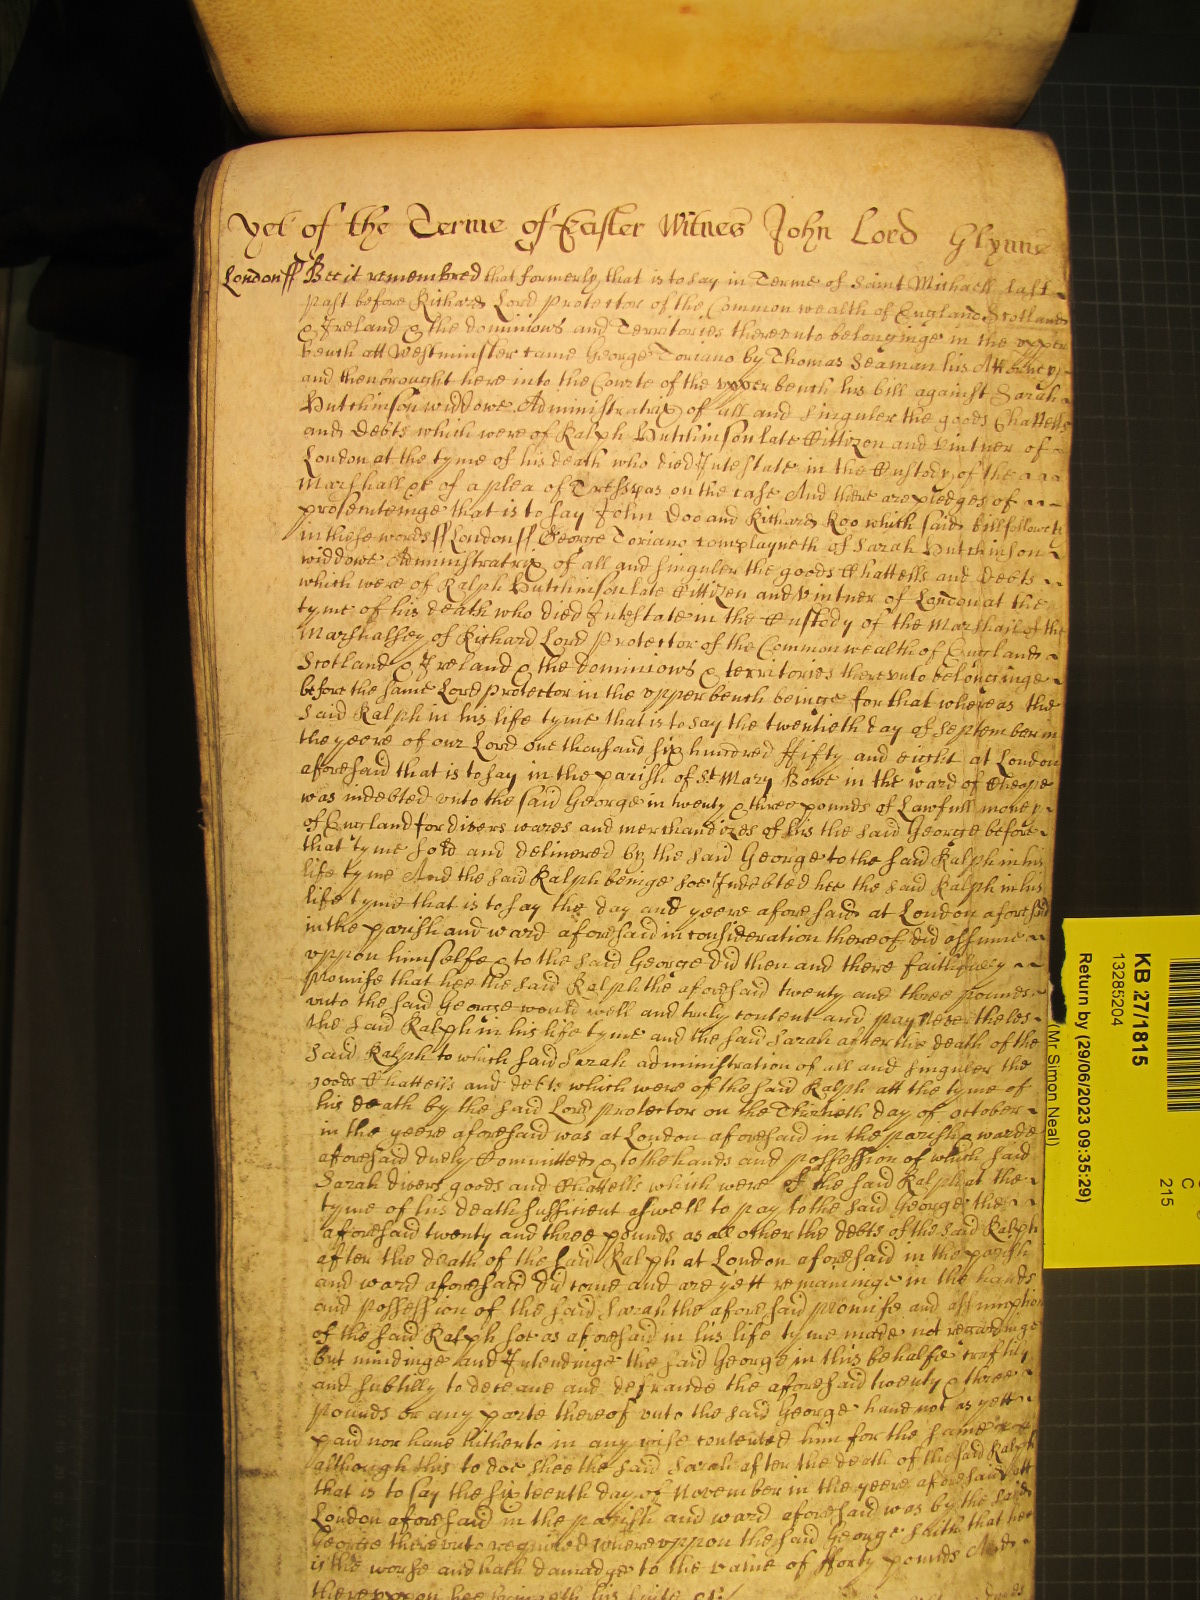 Yet of the Terme of Easter Witnes John Lord Glynne
London ss Bee it remembred that formerly that is to say in Terme of Saint Michaell last
past before Richard Lord Protector of the Common wealth of England Scotland
& Ireland & the dominions and Territories therevnto belonginge in the vpper
bench att Westminster came George Toriano by Thomas Seaman his Attorney
and then brought here into the Courte of the vpper bench his bill against Sarah
Hutchinson widdowe Administratrix of all and singuler the goods Chattells
and Debts which were of Ralph Hutchinson late Cittizen and Vintner of
London at the tyme of his death who died Intestate in the Custody of the
Marshall &c of a plea of Tresspas on the case And there are pledges of
prosecuteinge that is to say John Doo and Richard Roo which said bill followeth
in these words ss London ss George Toriano complayneth of Sarah Hutchinson
widdowe Administratrix of all and singuler the goods Chattells and Debts
which were of Ralph Hutchinson late Cittizen and Vintner of London at the
tyme of his death who died Intestate in the Custody of the Marshall of the
Marshalsey of Richard Lord Protector of the Common wealth of England
Scotland & Ireland & the dominions & territories therevnto belonginge
before the same Lord Protector in the vpper bench beinge for that whereas the
said Ralph in his life tyme that is to say the twentieth day of September in
the yeere of our Lord one thousand six hundred ffifty and eight at London
aforesaid that is to say in the parish of St Mary Bowe in the ward of Cheape
was indebted vnto the said George in twenty & three pounds of Lawfull money
of England for divers wares and merchandizes of his the said George before
that tyme sold and delivered by the said George to the said Ralph in his
life tyme And the said Ralph beinge soe Indebted hee the said Ralph in his
life tyme that is to say the day and yeere aforesaid at London aforesaid
in the parish and ward aforesaid in consideration thereof did assume
vppon himselfe & to the said George did then and there faithfully
Promise that hee the said Ralph the aforesaid twenty and three pounds
vnto the said George would well and truly content and pay Nevertheles
the said Ralph in his life tyme and the said Sarah after the death of the
said Ralph to which said Sarah administration of all and singuler the
goods Chattells and debts which were of the said Ralph att the tyme of
his death by the said Lord Protector on the Thirtieth day of October
in the yeere aforesaid was at London aforesaid in the parish & warde
aforesaid duely Committed & to the hands and possession of which said
Sarah divers goods and Chattells which were of the said Ralph at the
tyme of his death sufficient aswell to pay to the said George the
aforesaid twenty and three pounds as all other the debts of the said Ralph
after the death of the said Ralph at London aforesaid in the parish
and ward aforesaid did come and are yett remaininge in the hands
and Possession of the said Sarah the aforesaid promise and assumption
of the said Ralph soe as aforesaid in his life tyme made not regardinge
but mindinge and Intendinge the said George in this behalfe craftily
and subtilly to deceave and defraude the aforesaid twenty & three
pounds or any parte thereof vnto the said George have not as yett
paid nor have hitherto in any wise contented him for the same
although this to doe shee the said Sarah after the death of the said Ralph
that is to say the sixteenth day of November in the yeere aforesaid att
London aforesaid in the parish and ward aforesaid was by the said
George therevnto required wherevppon the said George saith that hee
is the worse and hath damadge to the value of fforty pounds And
therevppon hee bringeth his suite &c
KB 27/1815
13285204
Return by (29/06/2023 09:35:29)
(Mr Simon Neal)
C
215